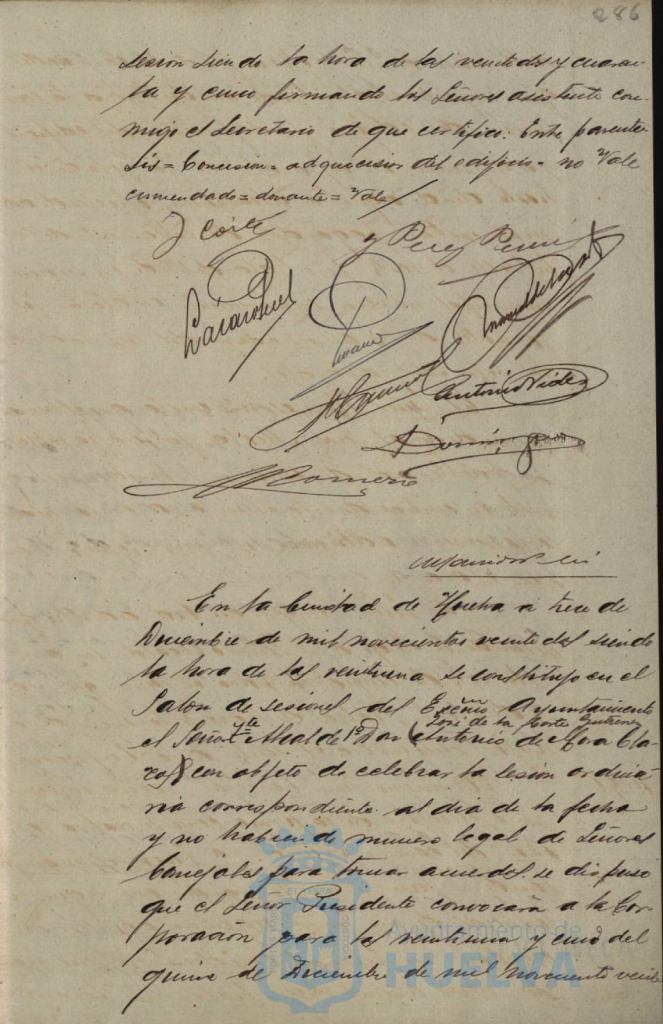 286
sesion siendo la hora de las veintidos y cuaren-
ta y cinco firmando los Señores asistente con-
migo el Secretario de que certifico: Entre parente-
sis = Concesion = adquicision del edificio = no Vale
enmendado = donante = Vale
J Corte
y Perez
Antonio Videz
Dominguez
A Romero
En la Ciudad de Huelva a trece de
Diciembre de mil novecientos veintidos siendo
la hora de las veintiuna se constituyo en el
Salon de sesiones del Excmo Ayuntamiento
José de la Corte Gutierrez
el Señor Alcalde 1º Don (Antonio de Mora Cla-
ros) con objeto de celebrar la sesion ordina-
ria correspondiente al dia de la fecha
y no habiendo numero legal de Señores
Concejales para tomar acuerdos se dispuso
que el Señor Presidente convocara a la Cor-
poración para las veintiuna y del
quince de Diciembre de mil novecientos veinti
Ayuntamiento de
HUELVA